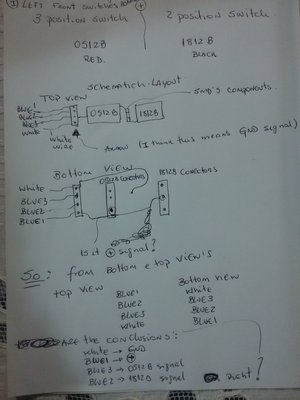 ① LEFT FRONT SWITCHES
3 POSITION SWITCH
2 POSITION SWITCH.
0512B
RED.
1812B
BLACK
SCHEMATICH LAYOUT
TOP VIEW
SMD'S COMPONENTS.
BLUE1
BLUE2
White
0512B
1812B
White
wire
Arrow (I think this means GND signal)
BOTTOM VIEW
0512B CONECTORS
1812B CONECTORS
White
BLUE3
BLUE2
BLUE1
Is it ⊕ signal?
So: from BOTTOM e TOP VIEW'S
TOP VIEW
BOTTOM VIEW
BLUE1
White
BLUE2
BLUE3
BLUE3
BLUE2
White
BLUE1
ARE THE CONCLUSIONS:
White → GND
BLUE1 → ⊕
BLUE3 → 0512B signal
BLUE2 → 1812B signal
Right?